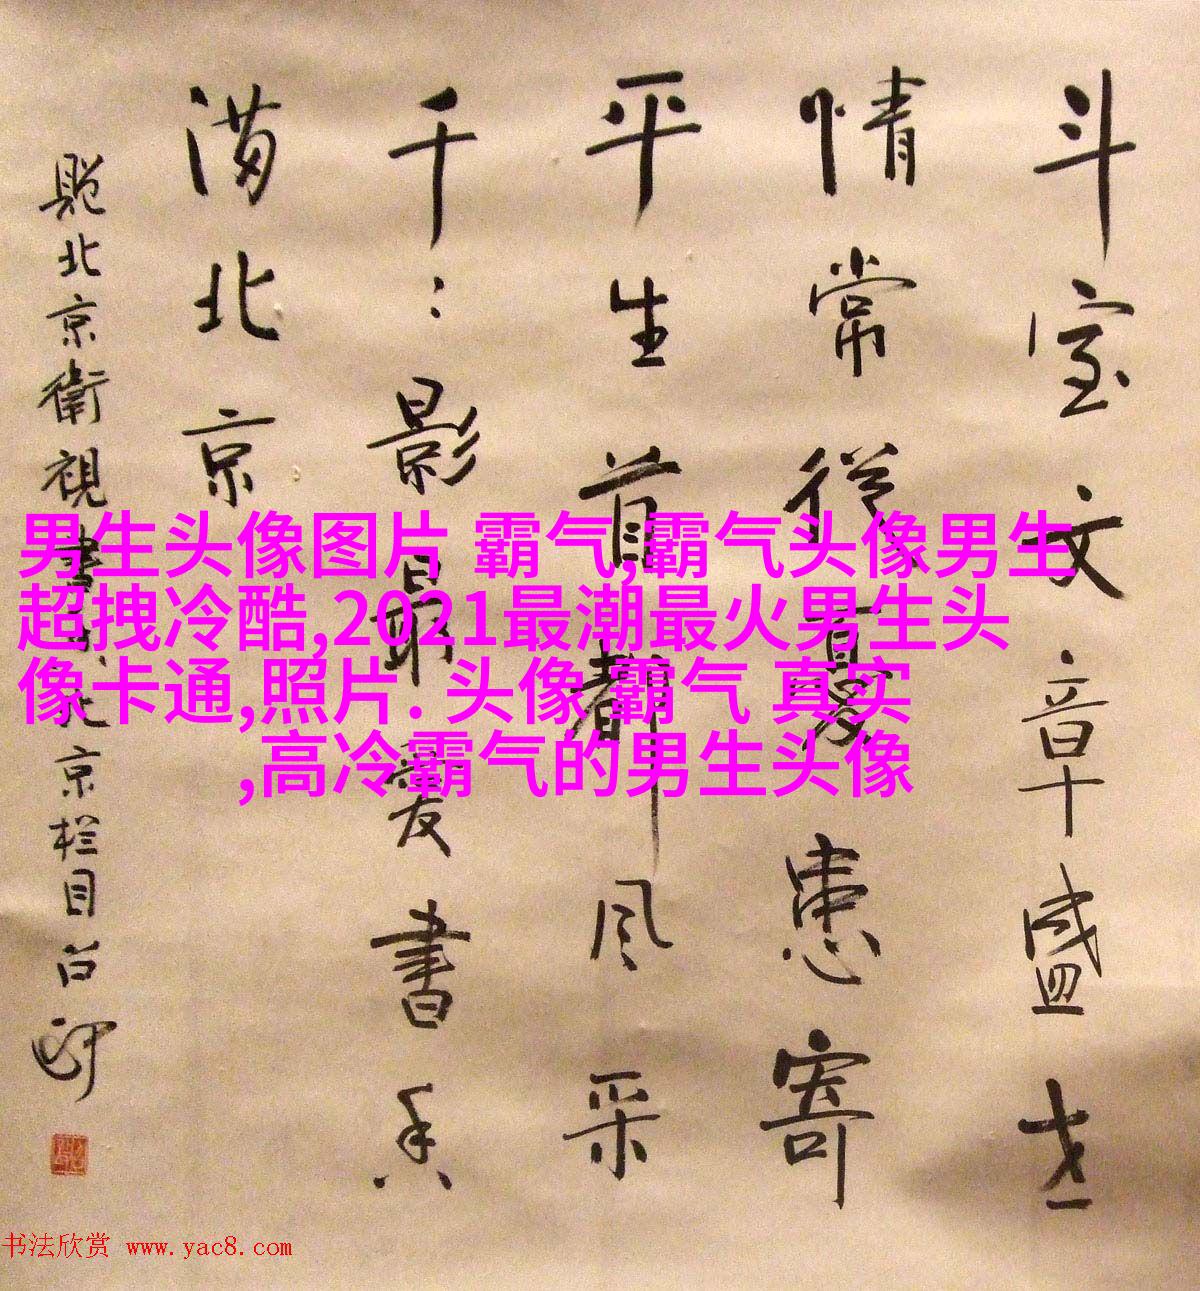 斗室文章盛世
情常從憂患寄
平生首都风采
千〻影最愛書香
满北京
題北京衛視書香北京栏目
男生头像图片 霸气,霸气头像男生
超拽冷酷,2021最潮最火男生头
像卡通,照片. 头像 霸气 真实
,高冷霸气的男生头像
书法欣赏 www.yac8.com